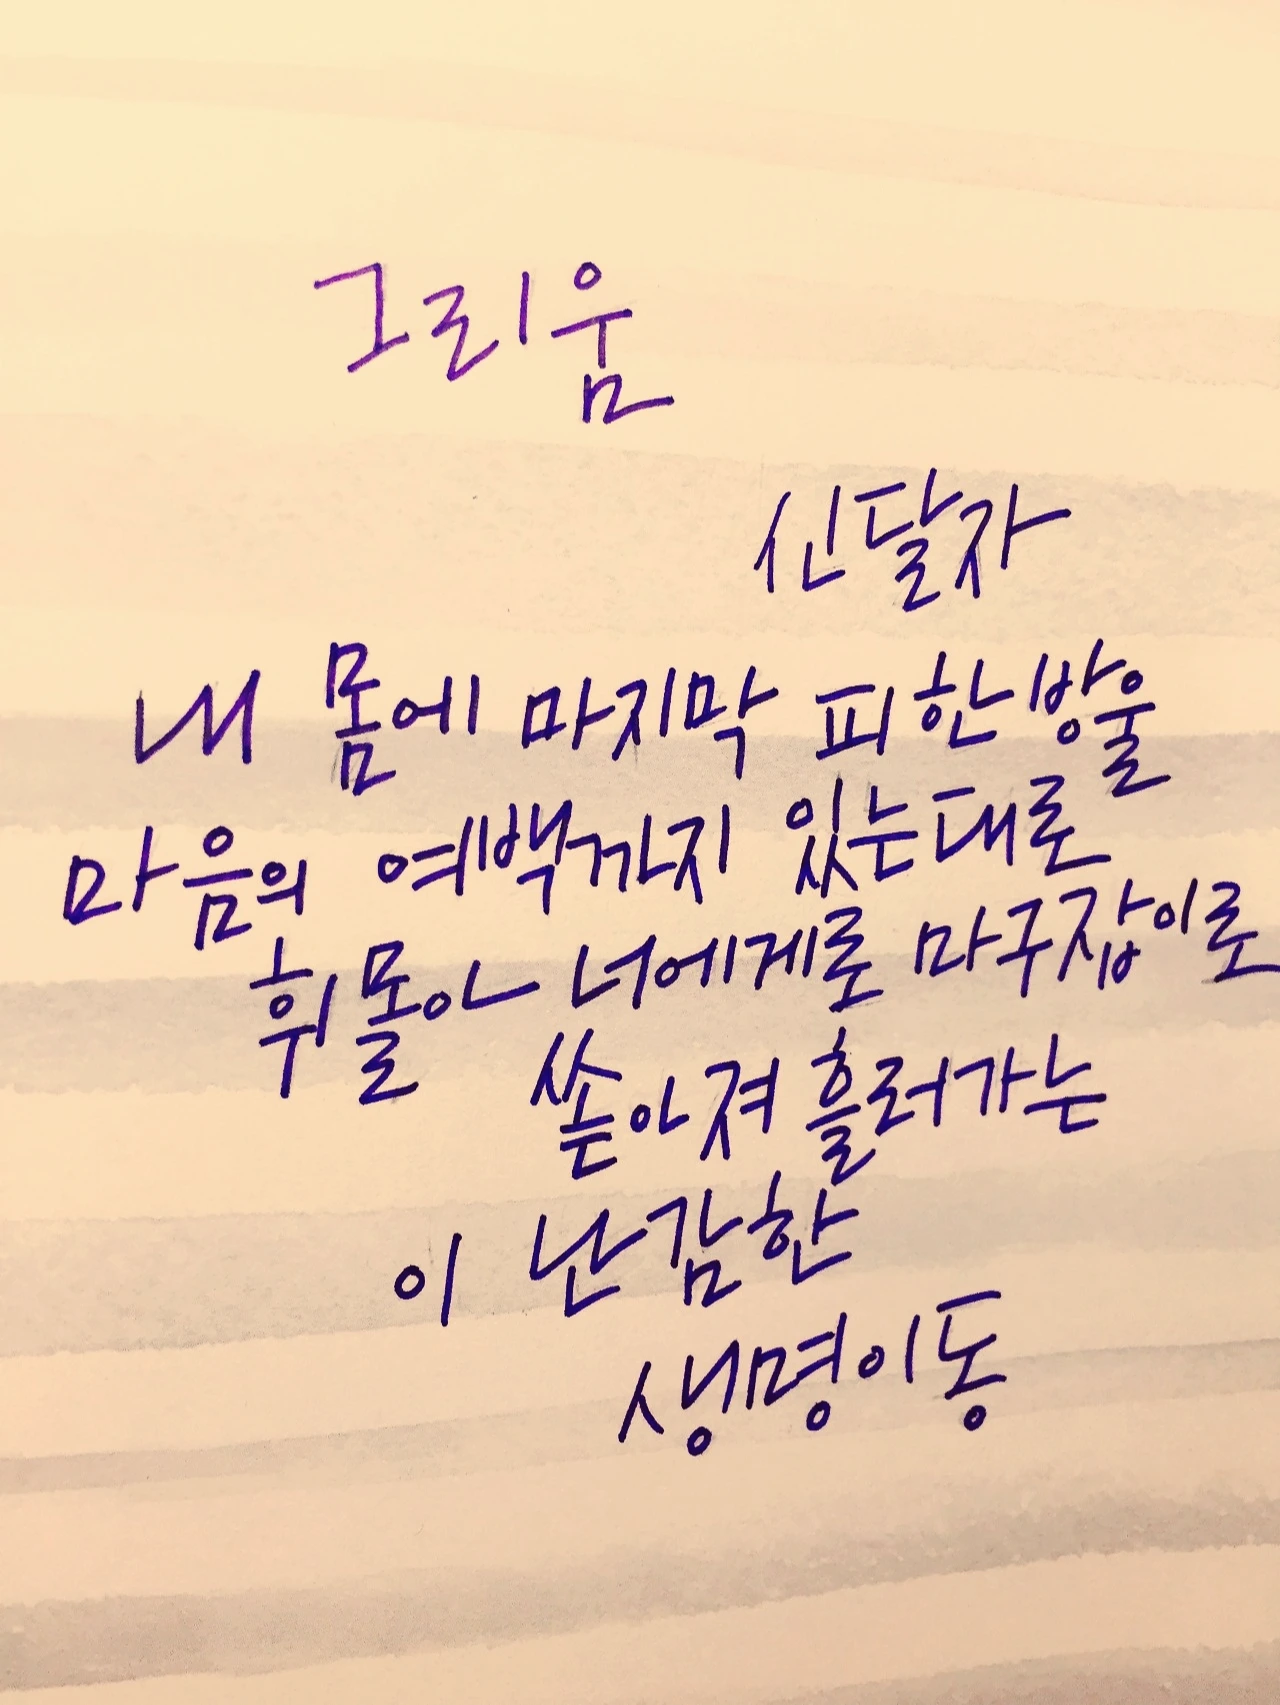 그리움
신달자
내 몸에 마지막 피 한방울
마음의 여백까지 있는대로
휘몰아 너에게로 마구잡이로
쏟아져 흘러가는
이 난감한
생명이동